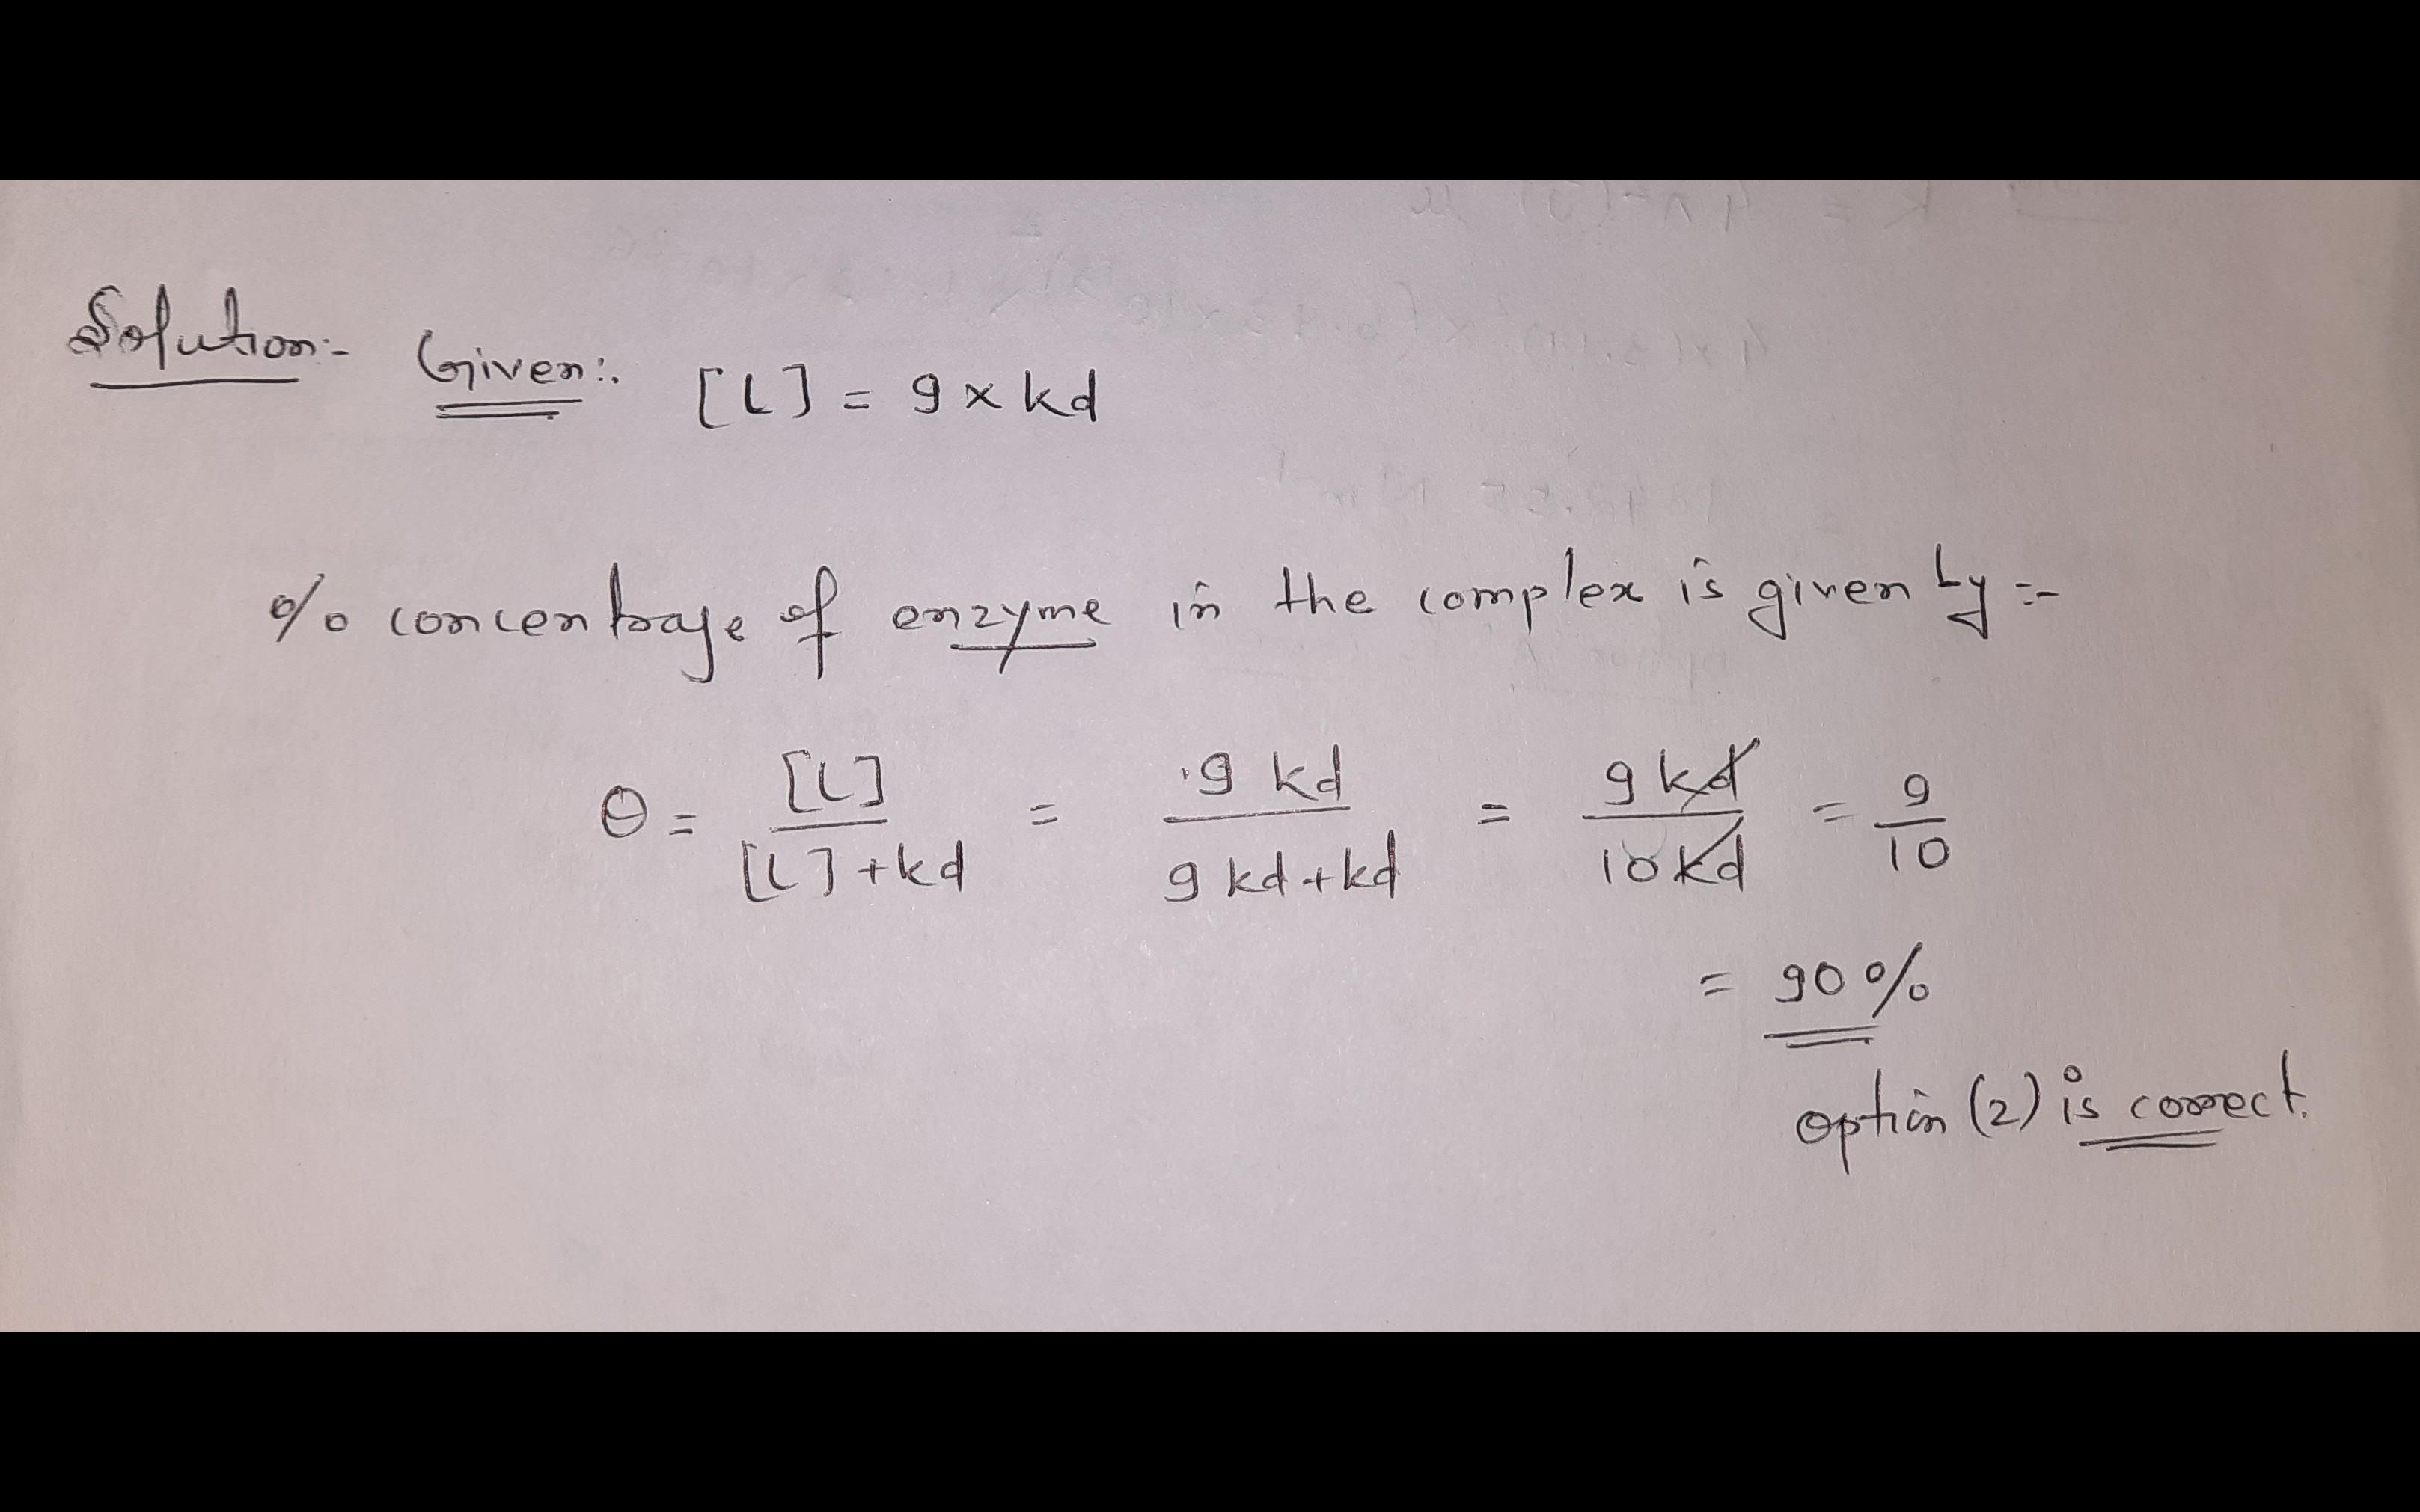 Solution:- Given:. [L] = 9 x kd
% concentrage of enzyme in the complex is given by :-
θ = [L] / [L] + kd = 9 kd / 9 kd + kd = 9 kd / 10 kd = 9 / 10
= 90 %
option (2) is correct.